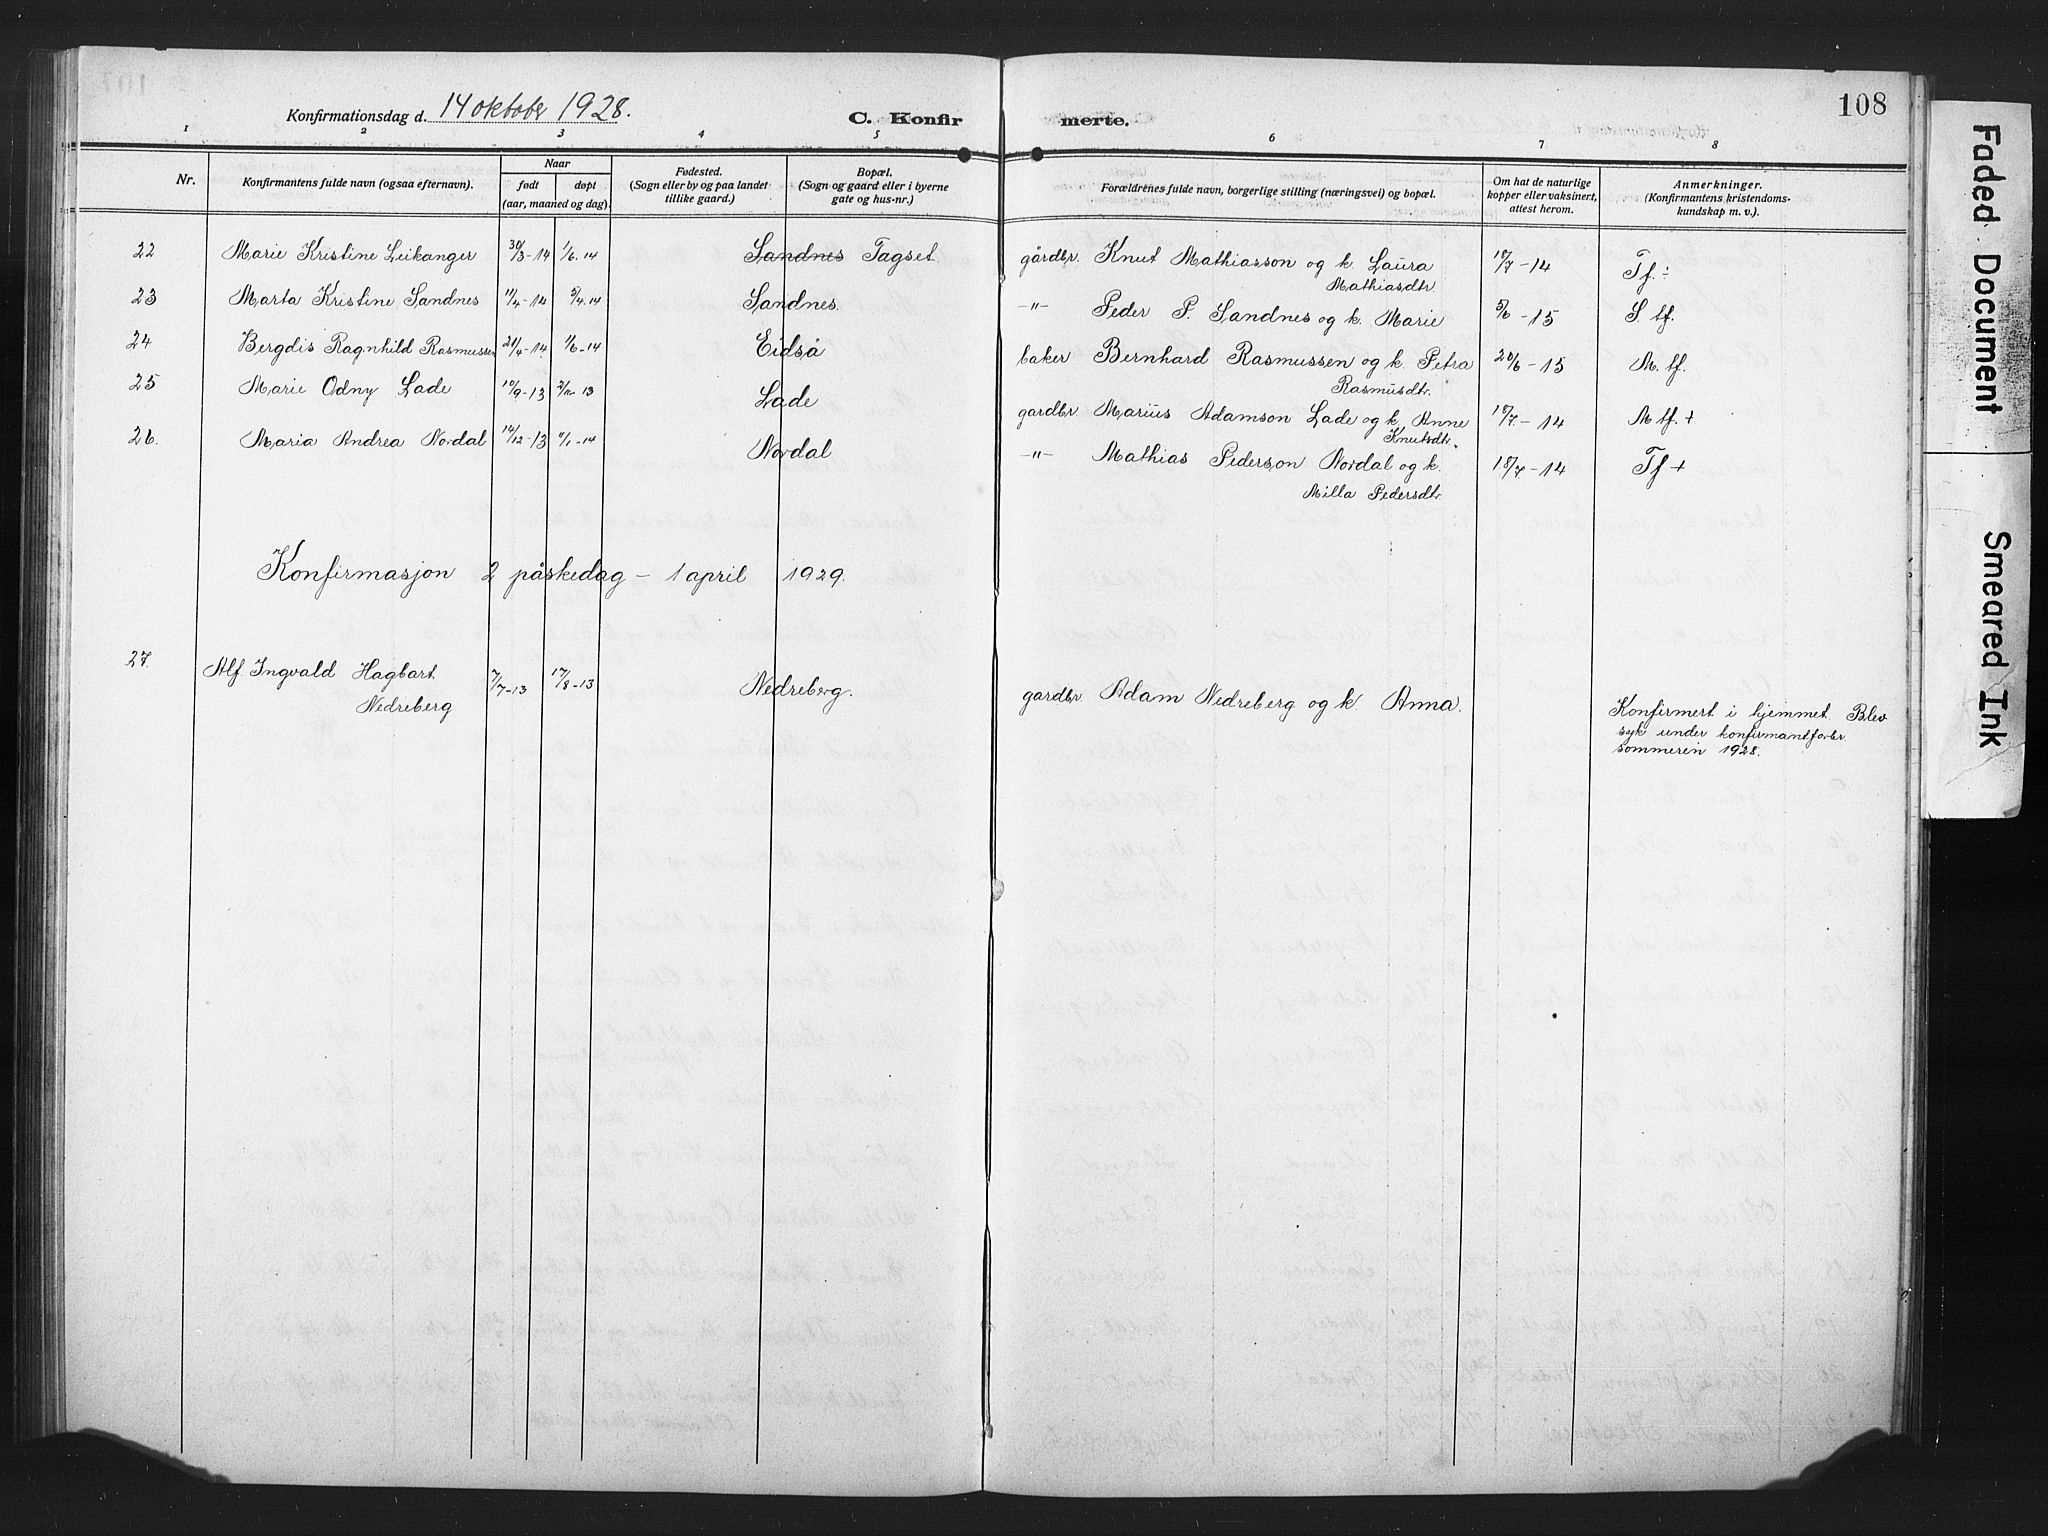 Konfirmationsdag d. 14 oktober 1928.
C. Konfirmerte.
108
1 2 3 4 5 6 7 8
Nr.
Konfirmantens fulde navn (ogsaa efternavn).
Naar
født døpt
(aar, maaned og dag).
Fødested.
(Sogn eller by og paa landet
tillike gaard.)
Bopæl.
(Sogn og gaard eller i byerne
gate og hus-nr.)
Forældrenes fulde navn, borgerlige stilling (næringsvei) og bopæl.
Om hat de naturlige
kopper eller vaksinert,
attest herom.
Anmerkninger.
(Konfirmantens kristendoms-
kundskap m. v.)
22 Marie Kristine Leikanger 30/3-14 1/6.14 Sandnes Tagset. gårdbr. Knut Mathiasson og k. Laura 18/7-14 Tf. ÷
Mathiasdtr
23 Marta Kristine Sandnes 11/4-14 5/4.14 Sandnes. -"- Peder P. Sandnes og k. Marie 5/6-15 S tf.
24 Bergdis Ragnhild Rasmussen 21/4-14 1/6-14 Eidså baker Bernhard Rasmussen og k. Petra 20/6-15 M. tf.
Rasmusdtr.
25 Marie Odny Lade 10/9-13 2/11-13 Lade gardbr Marius Adamson Lade og k. Anne 18/7-14 M tf. +
Knutsdtr.
26. Maria Andrea Nordal 14/12-13 11/1-14 Nordal -"- Mathias Pederson Nordal og k. 18/7-14 Tf +
Milla Pedersdtr.
Konfirmasjon 2 påskedag - 1 april 1929.
27. Alf Ingvald Hagbart 7/7-13 17/8-13 Nedreberg. gardbr Adam Nedreberg og k. Anna.
Nedreberg
Konfirmert i hjemmet. Blev
syk under konfirmantforbr
sommeren 1928.
Faded Document
Smeared Ink